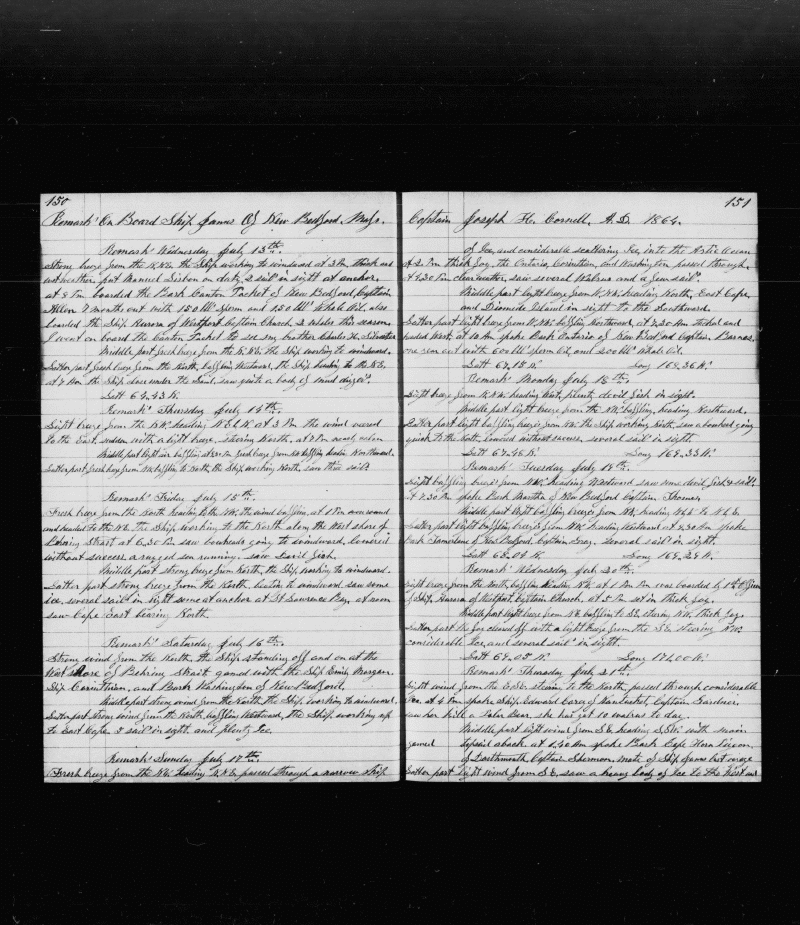 150
Remark's On Board Ship James Of New Bedford, Mass.
Remark's Wednesday July 13th
Strong breeze from the N.N.E. the Ship working to windward at 3 Pm thick and
wet weather, put Manuel Lisbon on duty, 2 sail's in sight at anchor.
at 8 Pm boarded the Bark Canton Packet of New Bedford, Captain
Allen 9 months out with 150 bbl's Sperm and 150 bbl's Whale Oil. also
boarded the Ship Aurora of Westport Captain Church, 2 Whales this season
I went on board the Canton Packet to see my brother Charles H.
Middle part fresh breeze from the N.N.E. the Ship working to windward.
Latter part fresh breeze from the North, baffling Westward, the Ship heading to the N.E.
at 7 Am the Ship close under the land, saw quite a body of
Latt 64,43 N.
Remark's Thursday July 14th
Light breeze from the N.W. heading N.E.b.N. at 3 Pm the wind veered
to the East, sudden with a light breeze, steering North, at 8 Pm nearly calm
Middle part light air baffling at 2 Am fresh breeze from N.W. baffling headin Northward.
Latter part fresh breeze from N. baffling to North, the Ship working North, saw three sail's
Remark's Friday July 15th
Fresh breeze from the North heading to the N.W. the wind baffling, at 1 Pm wore round
and headed to the N.E. The Ship working to the North along the West shore of
Behring Strait at 6,30 Pm saw bowheads going to windward, lowered
without success a rugged sea running. saw Devil fish.
Middle part strong breeze from the North, the Ship working to windward.
Latter part strong breeze from the North, beating to windward saw some
ice, several sail's in sight some at anchor at St Lawrence Bay, at noon
saw Cape East bearing North
Remark's Saturday July 16th
Strong wind from the North, the Ship standing off and on at the
West shore of Behring Strait gamed with the Ship Emily Morgan,
Ship Corinthian, and Bark Washington of New Bedford.
Middle part strong wind from the North the Ship working to windward.
Latter part strong wind from the North, baffling Westward, the Ship working up
to East Cape 5 sail's in sight, and plenty Ice.
Remark's Sunday July 17th
Fresh breeze from the N.W. heading N.N.E. passed through a narrow strip
151
Captain Joseph H. Cornell, A.D. 1864.
of Ice, and considerable scattering Ice, into the Artic Ocean
at 2 Pm thick fog, the Ontario, Corinthian, and Washington passed through.
at 7,30 Pm clear weather, saw several Walrus and a few sail's.
Middle part light breeze from W.N.W. heading North, East Cape,
and Diomede Island in sight to the Southward.
Latter part light breeze from W.N.W. baffling Northward, at 7,30 Am tacked and
headed West, at 10 Am spoke Bark Ontario of New Bedford Captain, Barnes,
one season out with 600 bbl's Sperm Oil, and 200 bbl's Whale Oil.
Latt 67,15 N. Long 169,36 W.
Remark's Monday July 18th
Light breeze from N.N.W. heading West, plenty devil fish in sight.
Middle part light breeze from the N.W. baffling, heading Northward.
Latter part light baffling breeze's from N.W. the Ship working North, saw a bowhead going
quick to the North, lowered without success, several sail's in sight
Latt 67,46 N. Long 169,33 W.
Remark's Tuesday July 19th
Light baffling breeze's from N.W. heading Westward saw some devil fish & sail's.
at 7,30 Pm spoke Bark Martha of New Bedford Captain Thomas,
Middle part light baffling breeze's from N.W. heading N.b.E. to N.E.
Latter part light baffling breeze's from N.W. heading Westward at 9,30 Am spoke
Bark Tamerlane of New Bedford, Captain Gray. Several sail's in sight.
Latt 68,04 N. Long 169,29 W.
Remark's Wednesday July 20th
Light breeze from the North, baffling headin N.W. at 1 Pm Pm was boarded by 1st Officer
of Ship Aurora of Westport Captain Church. at 5 Pm set in thick fog.
Middle part light breeze from N.E. baffling to S.E. steering N.W. thick fog.
Latter part the fog cleared off with a light breeze from the S.E. steering N.W.
considerable Ice, and several sail's in sight.
Latt 69,05 N. Long 171,00 W.
Remark's Thursday July 21st
Light wind from the E.S.E. steering to the North, passed through considerable
Ice. at 4 Pm spoke Ship Edward Carey of Nantucket, Captain Gardner.
saw her kill a Polar Bear, she has got 10 walrus to day.
Middle part light wind from S.E. heading S.S.W. with main
topsail aback at 1,30 Am spoke Bark Cape Horn Pigeon
gamed
of Dartmouth, Captain Sherman, mate of Ship James last voyage
Latter part light wind from S.E. saw a heavy body of Ice to the West and